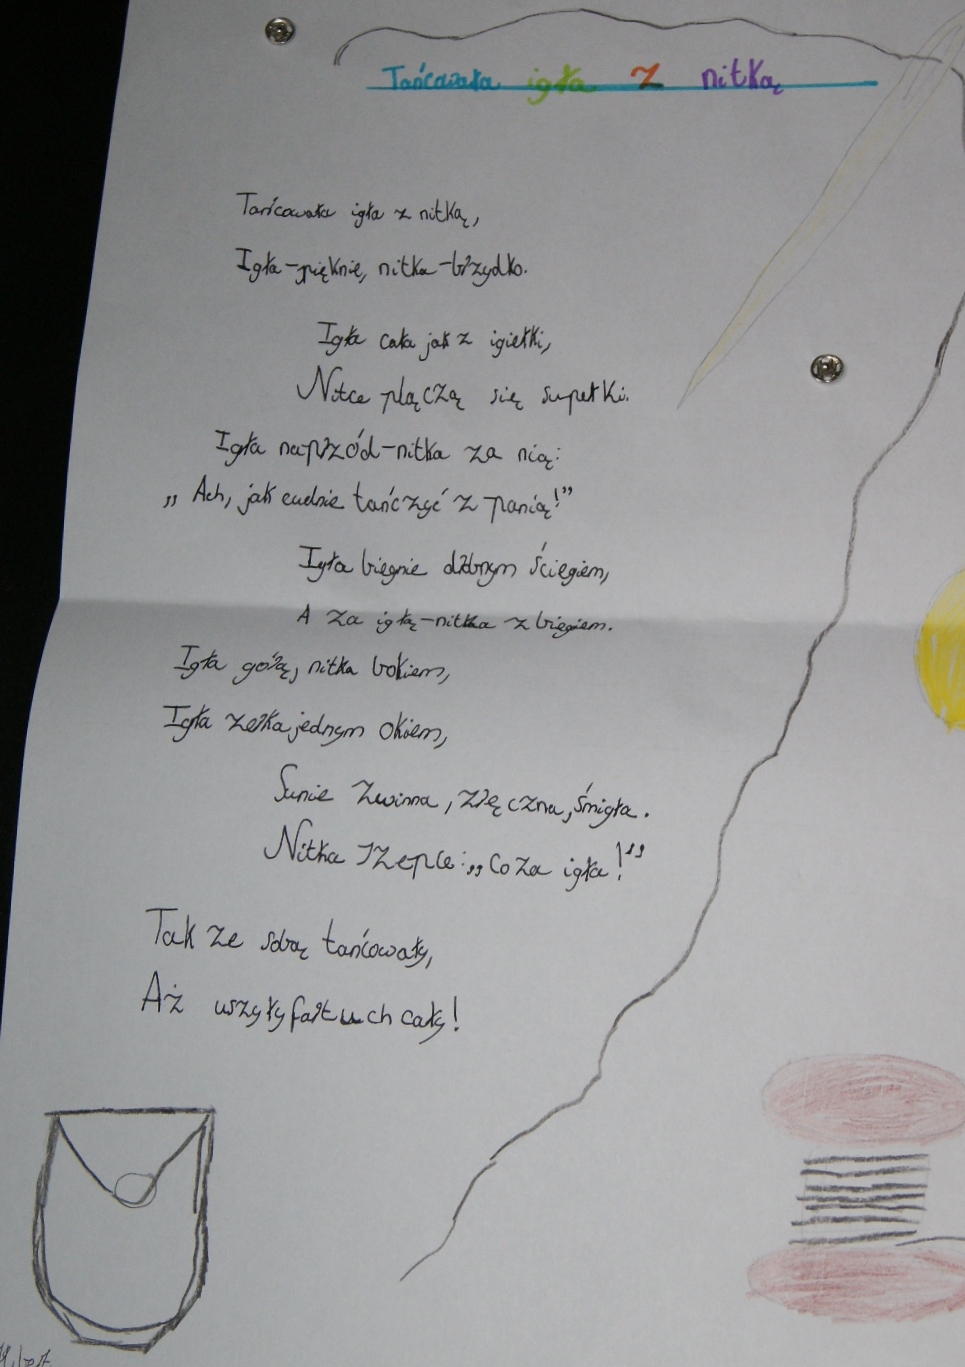 Tańcowała igła z nitką
Tańcowała igła z nitką,
Igła-pięknię, nitka-brzydko.
Igła cała jak z igiełki,
Nitce plączą się supełki.
Igła naprzód-nitka za nią:
„Ach, jak cudnie tańczyć z panią!”
Igła biegnie drobnym ściegiem,
A za igłą-nitka z biegiem.
Igła górą, nitka bokiem,
Igła zerka jednym okiem,
Sunie zwinna, zręczna, śmigła.
Nitka szepce: „Co za igła!”
Tak ze sobą tańcowały,
Aż uszyły fartuch cały!